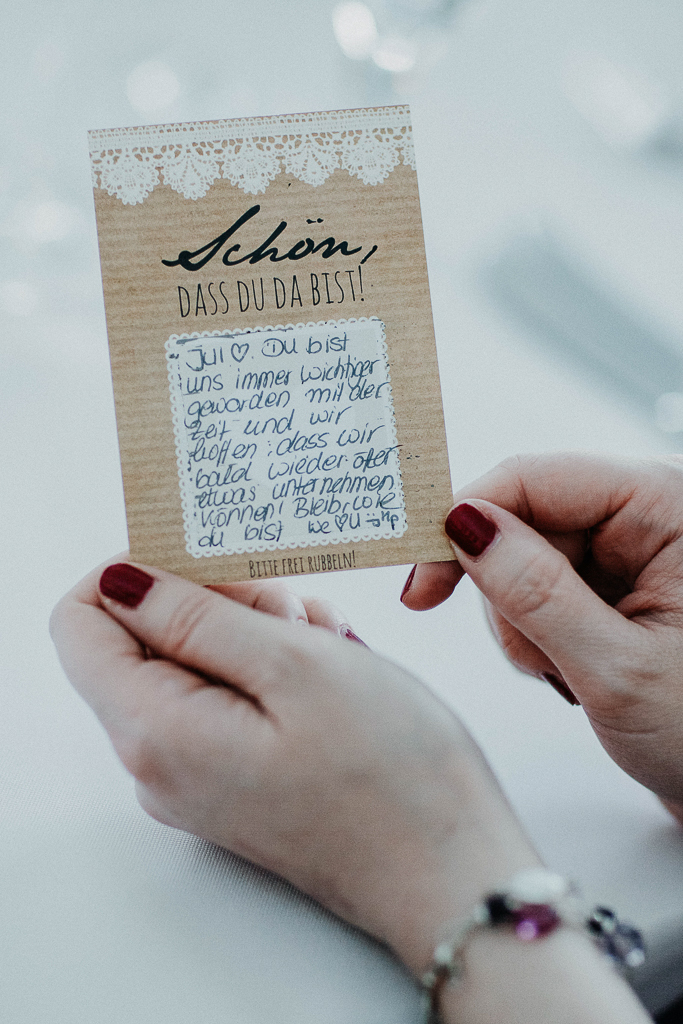 Schön,
DASS DU DA BIST!
Juli ♡. Du bist
uns immer wichtiger
geworden mit der
Zeit und wir
hoffen, dass wir
bald wieder öfter
etwas unternehmen
können! Bleib, wie
du bist We ♡ U
BITTE FREI RUBBELN!